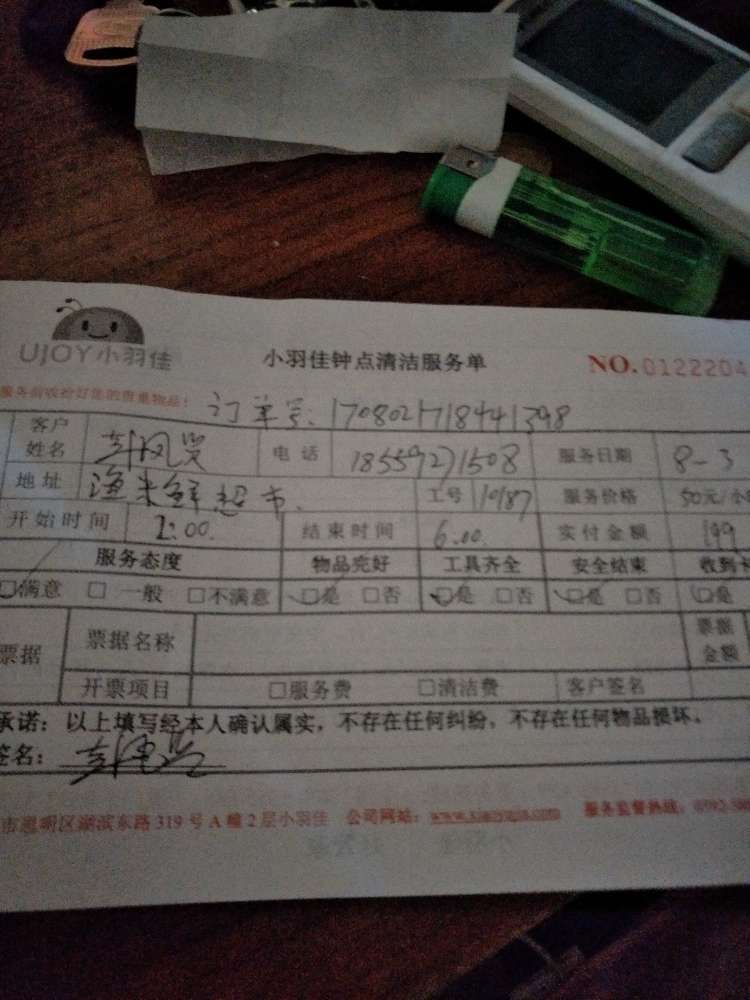 UJOY小羽佳
小羽佳钟点清洁服务单
NO.0122204
服务前收拾好您的贵重物品！
订单号:1708021718441398
客户姓名 电话 18559271508 服务日期 8-3
地址 渔米鲜超市 工号 10187 服务价格 50元/小
开始时间 2:00. 结束时间 6.00. 实付金额 199
服务态度 物品完好 工具齐全 安全结束 收到
□满意 □一般 □不满意 □是 □否 □是 □否 □是 □否 □是
票据 票据名称 票据金额
开票项目 □服务费 □清洁费 客户签名
承诺：以上填写经本人确认属实，不存在任何纠纷，不存在任何物品损坏。
签名：
市思明区湖滨东路319号A幢2层小羽佳 公司网站： 服务监督热线：0592-